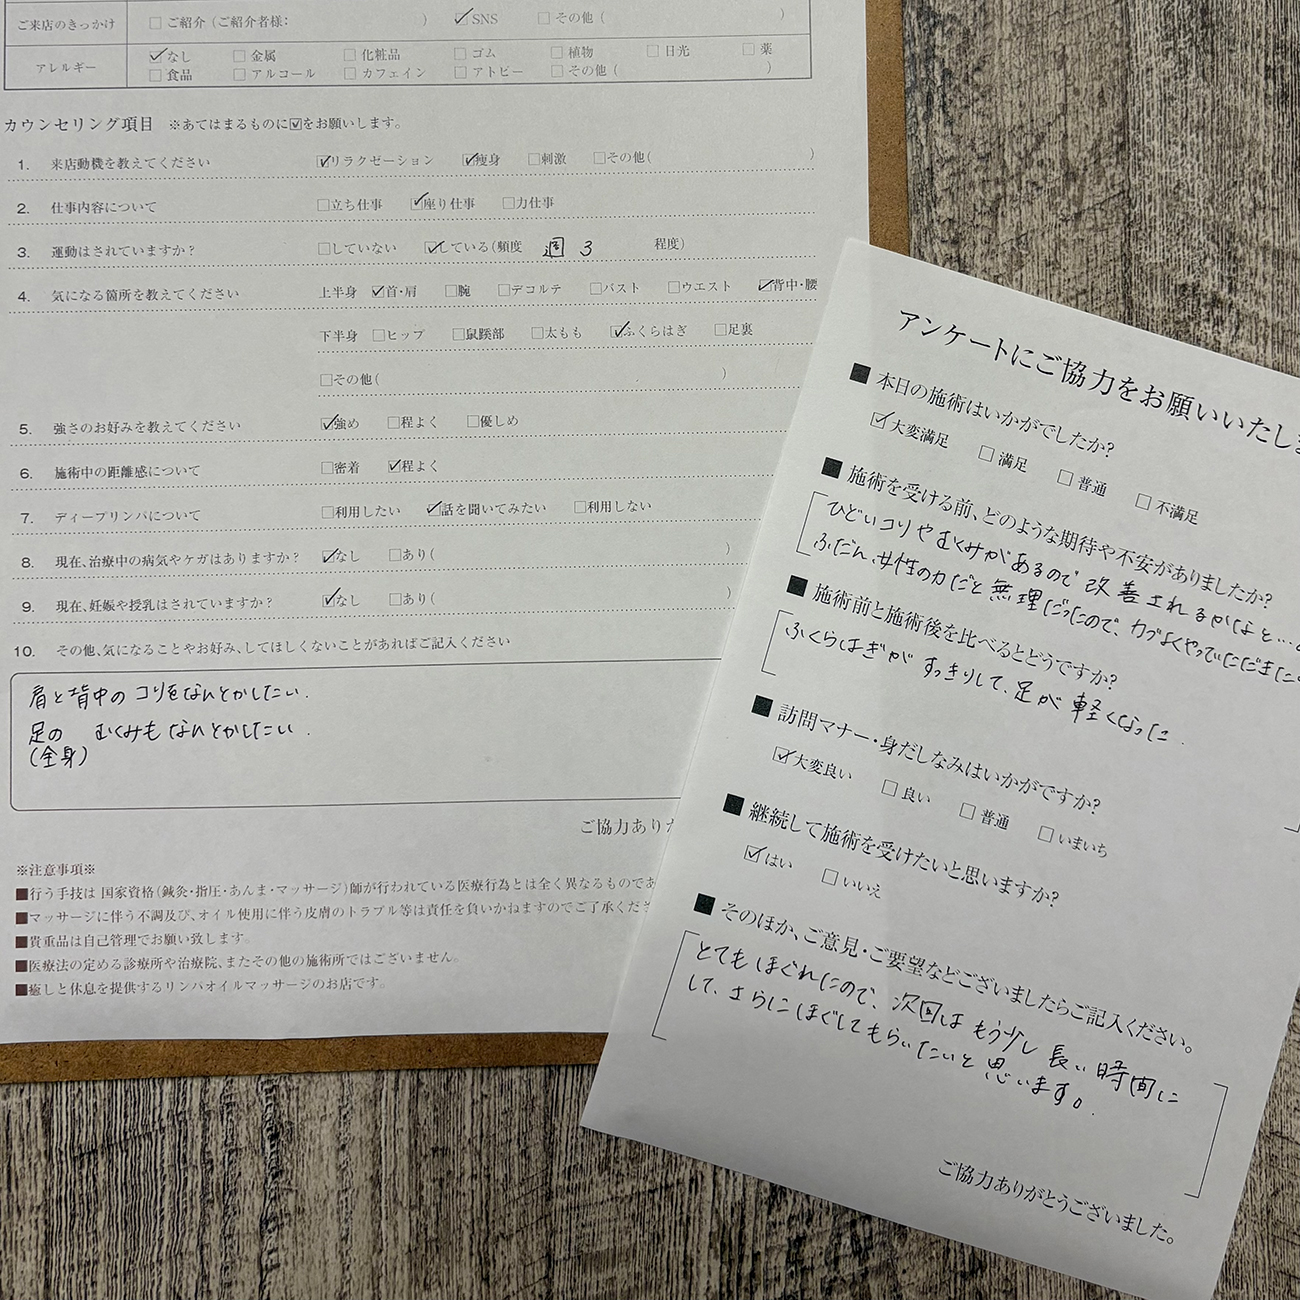 ご来店のきっかけ □ご紹介(ご紹介者様: ) ☑SNS □その他( )
アレルギー ☑なし □金属 □化粧品 □ゴム □植物 □日光 □薬
□食品 □アルコール □カフェイン □アトピー □その他( )
カウンセリング項目 ※あてはまるものに☑をお願いします。
1. 来店動機を教えてください ☑リラクゼーション ☑痩身 □刺激 □その他( )
2. 仕事内容について □立ち仕事 ☑座り仕事 □力仕事
3. 運動はされていますか? □していない ☑している(頻度 週3 程度)
4. 気になる箇所を教えてください 上半身 ☑首・肩 □腕 □デコルテ □バスト □ウエスト ☑背中・腰
下半身 □ヒップ □鼠蹊部 □太もも ☑ふくらはぎ □足裏
□その他( )
5. 強さのお好みを教えてください ☑強め □程よく □優しめ
6. 施術中の距離感について □密着 ☑程よく
7. ディープリンパについて □利用したい ☑話を聞いてみたい □利用しない
8. 現在、治療中の病気やケガはありますか? ☑なし □あり( )
9. 現在、妊娠や授乳はされていますか? ☑なし □あり( )
10. その他、気になることやお好み、してほしくないことがあればご記入ください
肩と背中のコリをなんとかしたい.
足の むくみもなんとかしたい.
(全身)
ご協力ありが
※注意事項※
■行う手技は 国家資格(鍼灸・指圧・あんま・マッサージ)師が行われている医療行為とは全く異なるものであ
■マッサージに伴う不調及び、オイル使用に伴う皮膚のトラブル等は責任を負いかねますのでご了承くださ
■貴重品は自己管理でお願い致します。
■医療法の定める診療所や治療院、またその他の施術所ではございません。
■癒しと休息を提供するリンパオイルマッサージのお店です。
アンケートにご協力をお願いいたしま
■ 本日の施術はいかがでしたか?
☑大変満足 □満足 □普通 □不満足
■ 施術を受ける前、どのような期待や不安がありましたか?
ひどいコリやむくみがあるので改善されるかなと…。
ふだん、女性の力だと無理だったので、力づよくやっていただきた
■ 施術前と施術後を比べるとどうですか?
ふくらはぎがすっきりして、足が軽くなった.
■ 訪問マナー・身だしなみはいかがですか?
☑大変良い □良い □普通 □いまいち
■ 継続して施術を受けたいと思いますか?
☑はい □いいえ
■ そのほか、ご意見・ご要望などございましたらご記入ください。
とてもほぐれたので、次回はもう少し長い時間に
して、さらにほぐしてもらいたいと思います。
ご協力ありがとうございました。